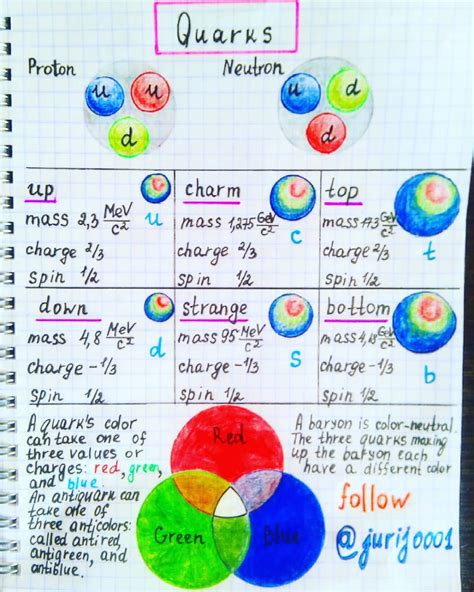 Quarks
Proton
Neutron
u u d
u d d
up
mass 2,3 MeV/c²
charge 2/3
spin 1/2
u
charm
mass 1,275 GeV/c²
charge 2/3
spin 1/2
c
top
mass 173 GeV/c²
charge 2/3
spin 1/2
t
down
mass 4,8 MeV/c²
charge -1/3
spin 1/2
d
strange
mass 95 MeV/c²
charge -1/3
spin 1/2
s
bottom
mass 4,18 GeV/c²
charge -1/3
spin 1/2
b
A quark's color
can take one of
three values or
charges: red, green,
and blue.
An antiquark can
take one of
three anticolors:
called antired,
antigreen, and
antiblue.
Red
Green
Blue
A baryon is color-neutral.
The three quarks making
up the baryon each
have a different color
follow
@jurij0001